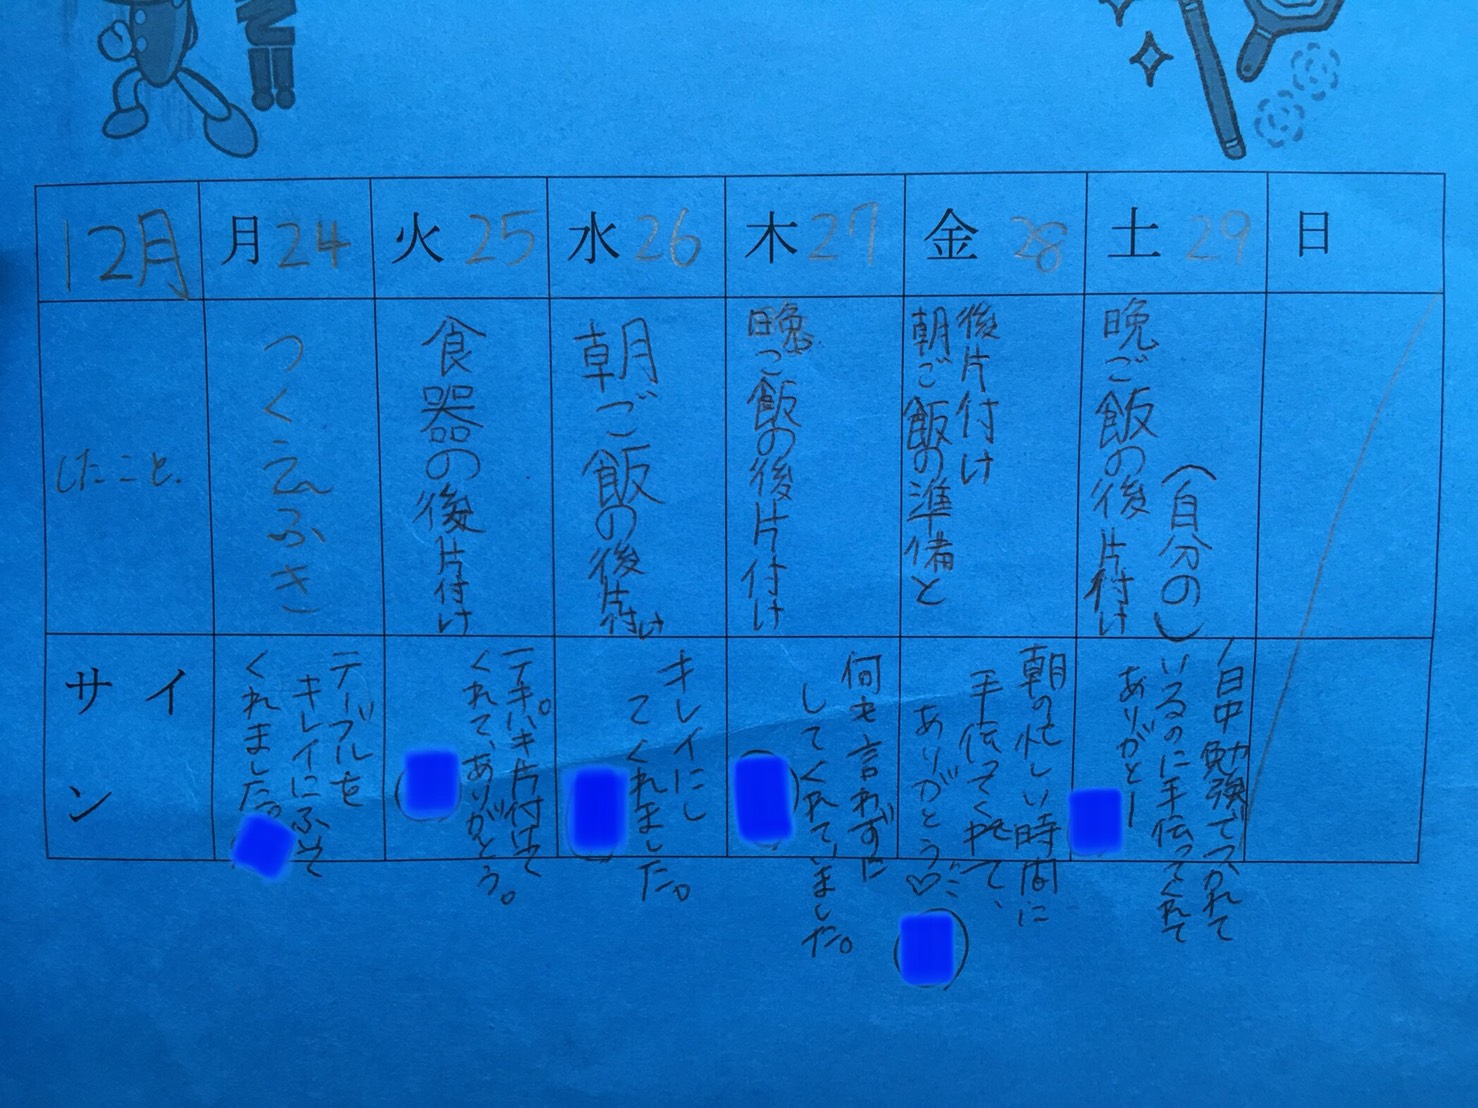 12月
月 24
火 25
水 26
木 27
金 28
土 29
日
したこと.
つくえふき
食器の後片付け
朝ご飯の後片付け
晩ご飯の後片付け
朝ご飯の準備と
後片付け
晩ご飯の後片付け
(自分の)
サイン
テーブルを
キレイにふいて
くれました。
テキパキ片付けて
くれて、ありがとう。
キレイにし
てくれました。
何も言わずに
してくれていました。
朝の忙しい時間に
手伝ってくれて、
ありがとう♡
1日中勉強でつかれて
いるのに手伝ってくれて
ありがとー